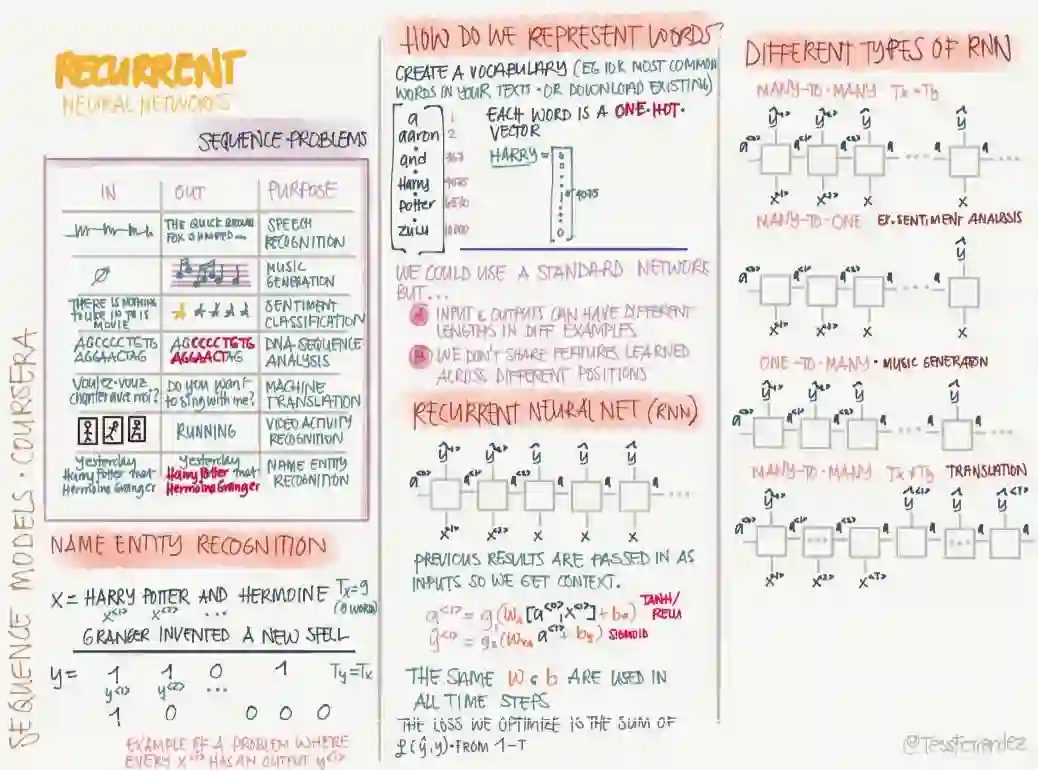 RECURRENT
NEURAL NETWORKS
SEQUENCE PROBLEMS
IN OUT PURPOSE
THE QUICK BROWN
FOX JUMPED....
SPEECH
RECOGNITION
∅
MUSIC
GENERATION
THERE IS NOTHING
TO LIKE IN THIS
MOVIE
SENTIMENT
CLASSIFICATION
AGCCCCTGTG
AGGAACTAG
AGCCCCTGTG
AGGAACTAG
DNA-SEQUENCE
ANALYSIS
Voulez-vouz
chanter avec moi?
Do you want
to sing with me?
MACHINE
TRANSLATION
RUNNING
VIDEO ACTIVITY
RECOGNITION
Yesterday
Harry Potter met
Hermoine Granger
Yesterday
Harry Potter met
Hermoine Granger
NAME ENTITY
RECOGNITION
NAME ENTITY RECOGNITION
X = HARRY POTTER AND HERMOINE Tx=9
x<1> x<2> ... (9 WORDS)
GRANGER INVENTED A NEW SPELL
y = 1 1 0 1 Ty=Tx
y<1> y<2> ...
1 0 0 0 0
EXAMPLE OF A PROBLEM WHERE
EVERY X<t> HAS AN OUTPUT y<t>
SEQUENCE MODELS · COURSERA
HOW DO WE REPRESENT WORDS?
CREATE A VOCABULARY (EG 10K MOST COMMON
WORDS IN YOUR TEXTS · OR DOWNLOAD EXISTING)
a 1
aaron 2
and 367
Harry 4075
Potter 6830
zulu 10000
EACH WORD IS A ONE·HOT·
VECTOR
HARRY =
0
0
1
0
4075
WE COULD USE A STANDARD NETWORK
BUT...
A INPUT & OUTPUTS CAN HAVE DIFFERENT
LENGTHS IN DIFF EXAMPLES
B WE DON'T SHARE FEATURES LEARNED
ACROSS DIFFERENT POSITIONS
RECURRENT NEURAL NET (RNN)
ŷ<1> ŷ<2> ŷ ŷ ŷ
a<0> a<1> a a a ...
x<1> x<2> x x x
PREVIOUS RESULTS ARE PASSED IN AS
INPUTS SO WE GET CONTEXT.
a<1> = g(Wa[a<0>,x<1>]+ba) TANH/
RELU
ŷ<1> = g2(Wya a<1>+ by) SIGMOID
THE SAME W & b ARE USED IN
ALL TIME STEPS
THE LOSS WE OPTIMIZE IS THE SUM OF
L(ŷ,y)·FROM 1-T
DIFFERENT TYPES OF RNN
MANY-TO-MANY Tx = Ty
ŷ<1> ŷ<2> ŷ ŷ
a<0> a<1> a<2> a ... a ...
x<1> x<2> x x
MANY-TO-ONE EX. SENTIMENT ANALYSIS
ŷ
a<0> a<1> a<2> a ... a
x<1> x<2> x x
ONE-TO-MANY · MUSIC GENERATION
ŷ<1> ŷ<2> ŷ ŷ
a<0> a<1> a<2> a ... a ...
x
MANY-TO-MANY Tx ≠ Ty TRANSLATION
ŷ<1> ŷ ŷ ŷ<T>
a<0> a<1> a a a a
x<1> x<2> x<T>
@TessFerrandez